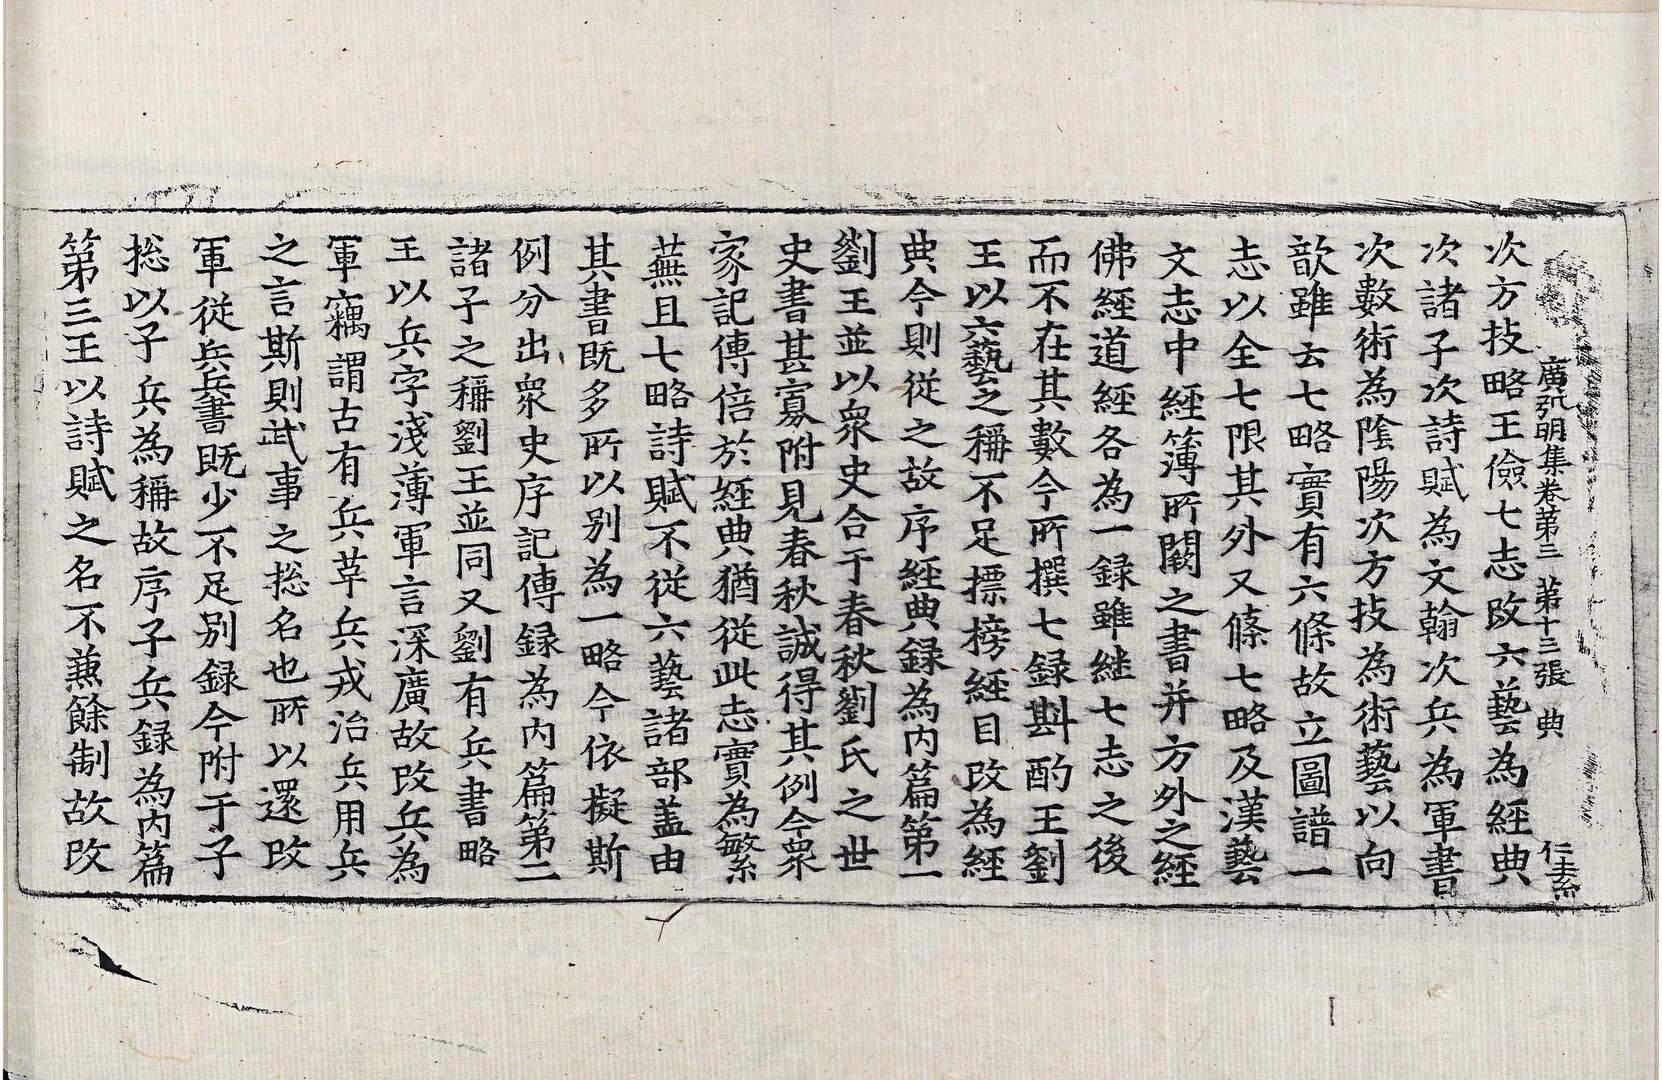 廣弘明集卷第三 第十三張 典 仁圭糸
次方技略王儉七志改六藝為經典
次諸子次詩賦為文翰次兵為軍書
次數術為陰陽次方技為術藝以向
歆雖云七略實有六條故立圖譜一
志以全七限其外又條七略及漢藝
文志中經簿所闕之書并方外之經
佛經道經各為一録雖継七志之後
而不在其數今所撰七録斟酌王劉
王以六藝之稱不足摽牓經目改為經
典今則従之故序經典録為内篇第一
劉王並以衆史合于春秋劉氏之世
史書甚寡附見春秋誠得其例今衆
家記傳倍於經典猶従此志實為繁
蕪且七略詩賦不従六藝諸部盖由
其書既多所以别為一略今依擬斯
例分出衆史序記傳録為内篇第二
諸子之稱劉王並同又劉有兵書略
王以兵字淺薄軍言深廣故改兵為
軍竊謂古有兵革兵戎治兵用兵
之言斯則武事之捴名也所以還改
軍従兵兵書既少不足别録今附于子
捴以子兵為稱故序子兵録為内篇
第三王以詩賦之名不蕪餘制故改